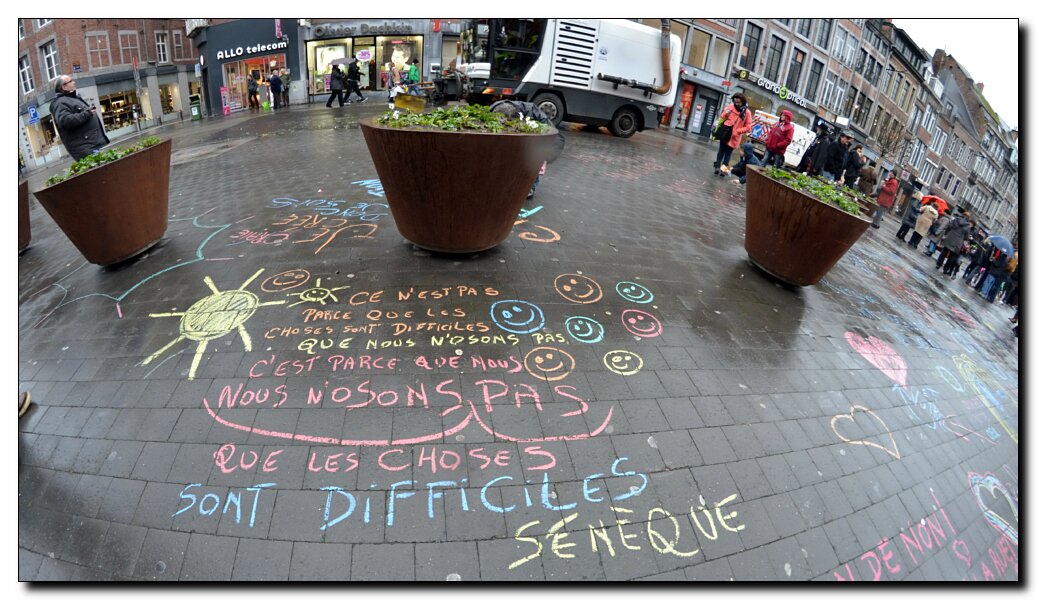 ALLO telecom
Olivier Dachkin
GrandOptical
CE N'EST PAS
PARCE QUE LES
CHOSES SONT DIFFICILES
QUE NOUS N'OSONS PAS
C'EST PARCE QUE NOUS
NOUS N'OSONS PAS
QUE LES CHOSES
SONT DIFFICILES
SÉNÈQUE
DE NON!